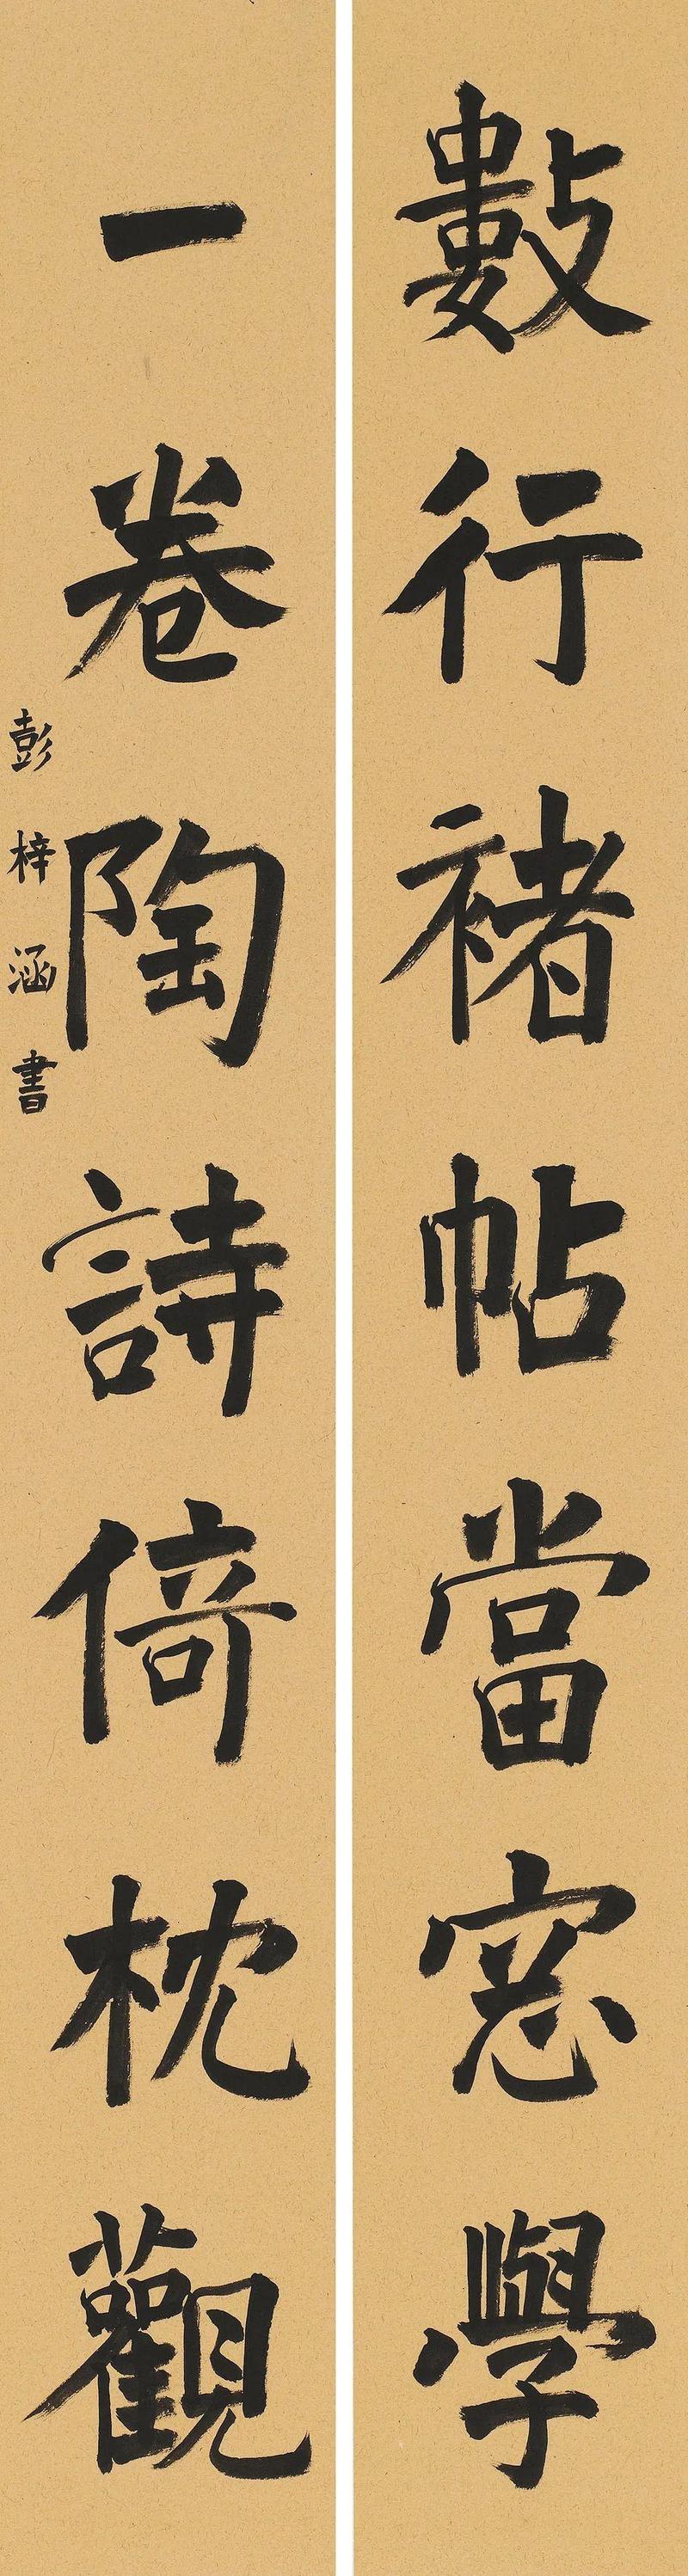 數行褚帖當窓學
一卷陶詩倚枕觀
彭梓涵書